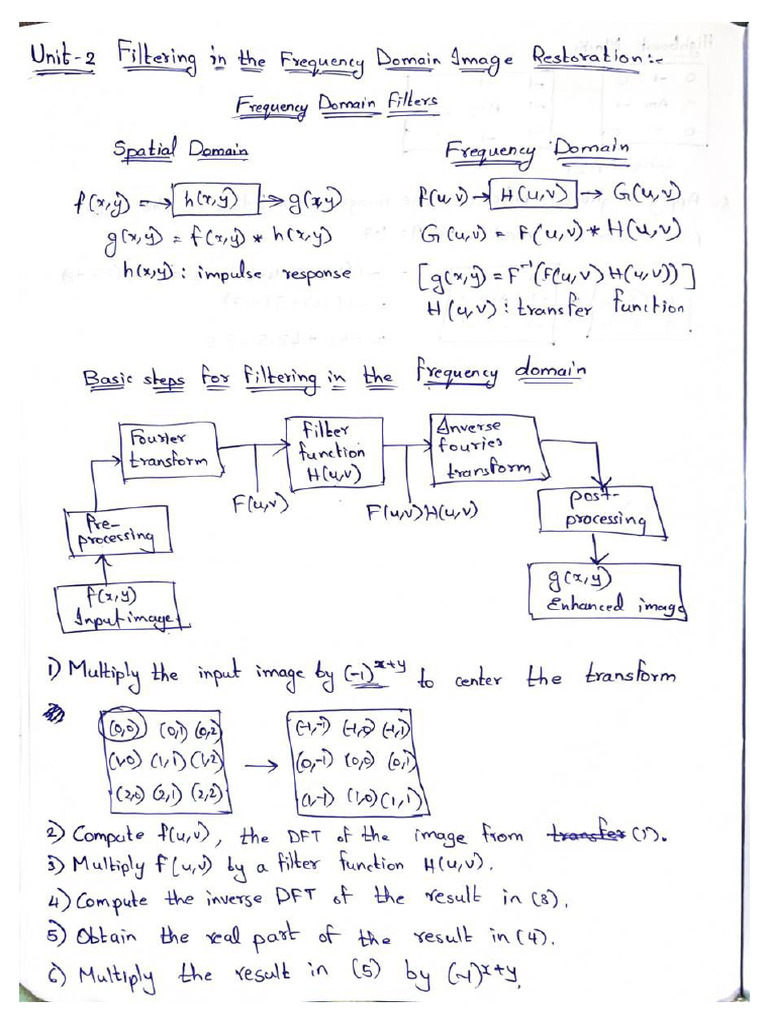 Unit-2 Filtering in the Frequency Domain Image Restoration:-
Frequency Domain Filters
Spatial Domain
f(x,y) → h(x,y) → g(x,y)
g(x,y) = f(x,y) * h(x,y)
h(x,y) : impulse response
Frequency Domain
f(u,v) → H(u,v) → G(u,v)
G(u,v) = F(u,v) * H(u,v)
[g(x,y) = F⁻¹(F(u,v) H(u,v))]
H(u,v) : transfer function
Basic steps for filtering in the frequency domain
Fourier
transform
Filter
function
H(u,v)
Inverse
fourier
transform
F(u,v)
F(u,v)H(u,v)
Pre-
processing
post-
processing
f(x,y)
Input image
g(x,y)
Enhanced image
1) Multiply the input image by (-1)^x+y to center the transform
(0,0) (0,1) (0,2)
(1,0) (1,1) (1,2)
(2,0) (2,1) (2,2)
→
(-1,-1) (-1,0) (-1,1)
(0,-1) (0,0) (0,1)
(1,-1) (1,0) (1,1)
2) Compute f(u,v), the DFT of the image from transfer (1).
3) Multiply f(u,v) by a filter function H(u,v).
4) Compute the inverse DFT of the result in (3).
5) Obtain the real part of the result in (4).
6) Multiply the result in (5) by (-1)^x+y.